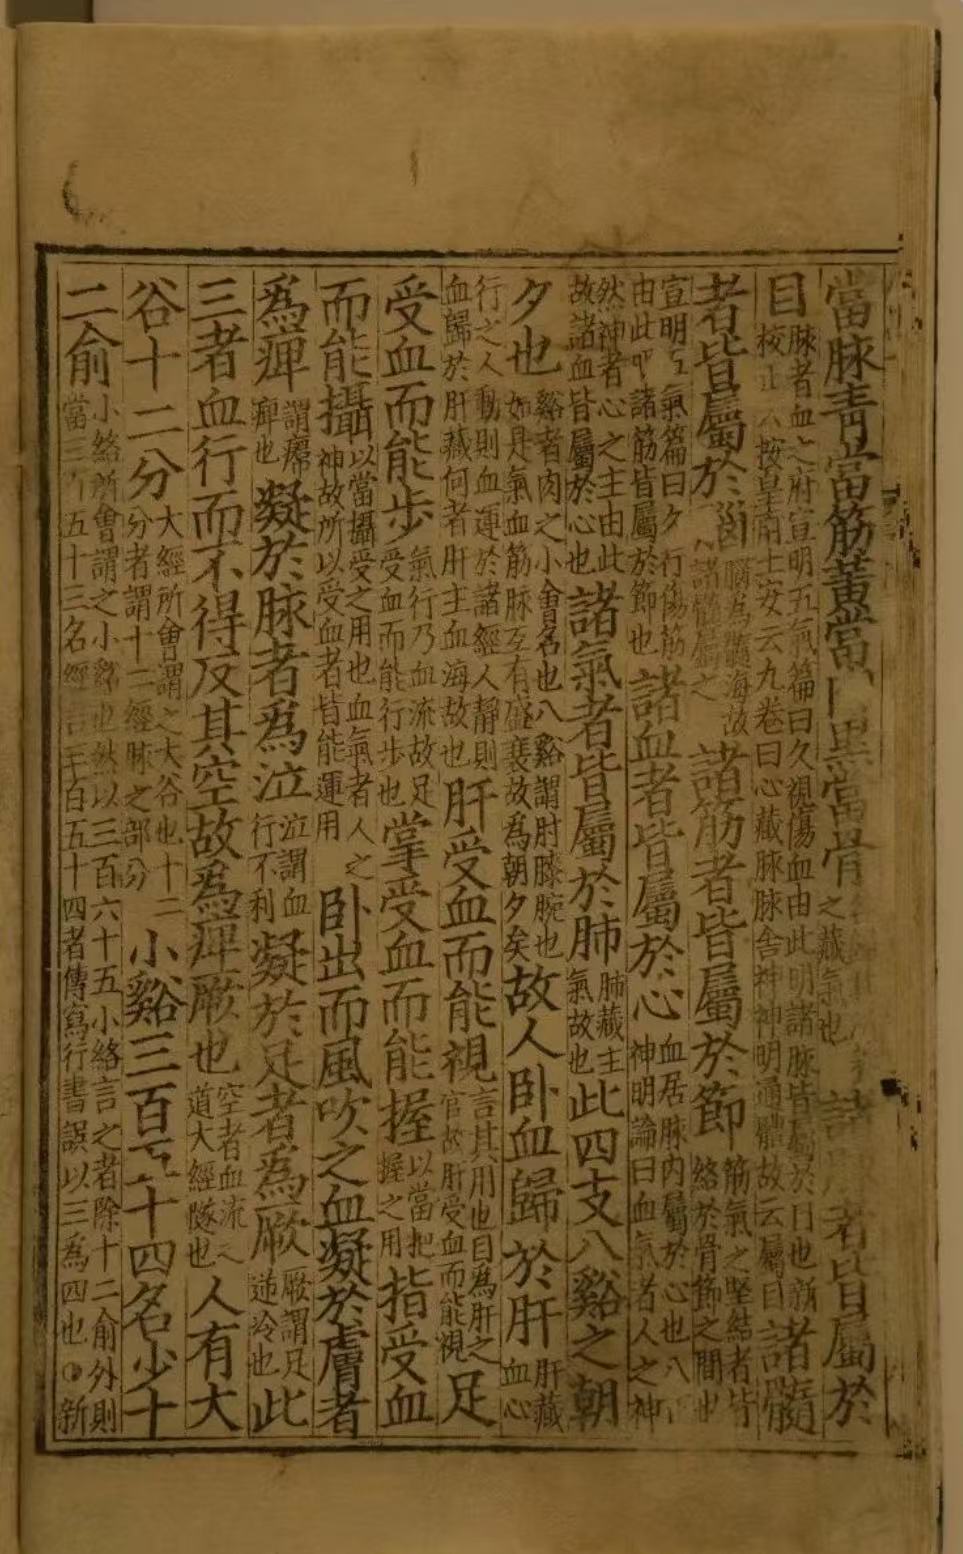 當脉青當筋黃當黑當骨之藏氣也諸者皆屬於
目脉者血之府宣明五氣篇曰久視傷血由此明諸脉皆屬於目也新校正云按皇甫士安云九卷曰心藏脉脉舍神神明通體故云屬目諸髓
者皆屬於腦腦爲髓海故諸髓屬之諸筋者皆屬於節筋氣之堅結者皆絡於骨節之間也
宣明五氣篇曰久行傷筋由此明諸筋皆屬於節也諸血者皆屬於心血居脉内屬於心也八神明論曰血氣者人之神
然神者心之主由此故諸血皆屬於心也諸氣者皆屬於肺肺藏主氣故也此四支八谿之朝
夕也谿者肉之小會名也八谿謂肘膝腕也如是氣血筋脉互有盛衰故爲朝夕矣故人卧血歸於肝肝藏血心
行之人動則血運於諸經人靜則血歸於肝藏何者肝主血海故也肝受血而能視言其用也目爲肝之官故肝受血而能視足
受血而能步氣行乃血流故足受血而能行步也掌受血而能握以當把握之用指受血
而能攝以當攝受之用也血氣者人之神故所以受血者皆能運用卧出而風吹之血凝於膚者
爲痺謂痺也凝於脉者爲泣泣謂血行不利凝於足者爲厥厥謂足逆冷也此
三者血行而不得反其空故爲痺厥也空者血流之道大經隧也人有大
谷十二分大經所會謂之大谷也十二分者謂十二經脉之部分小谿三百五十四名少十
二俞小絡所會謂之小谿也然以三百六十五小絡言之者除十二俞外則當三百五十三名經言三百五十四者傳寫行書誤以三爲四也新